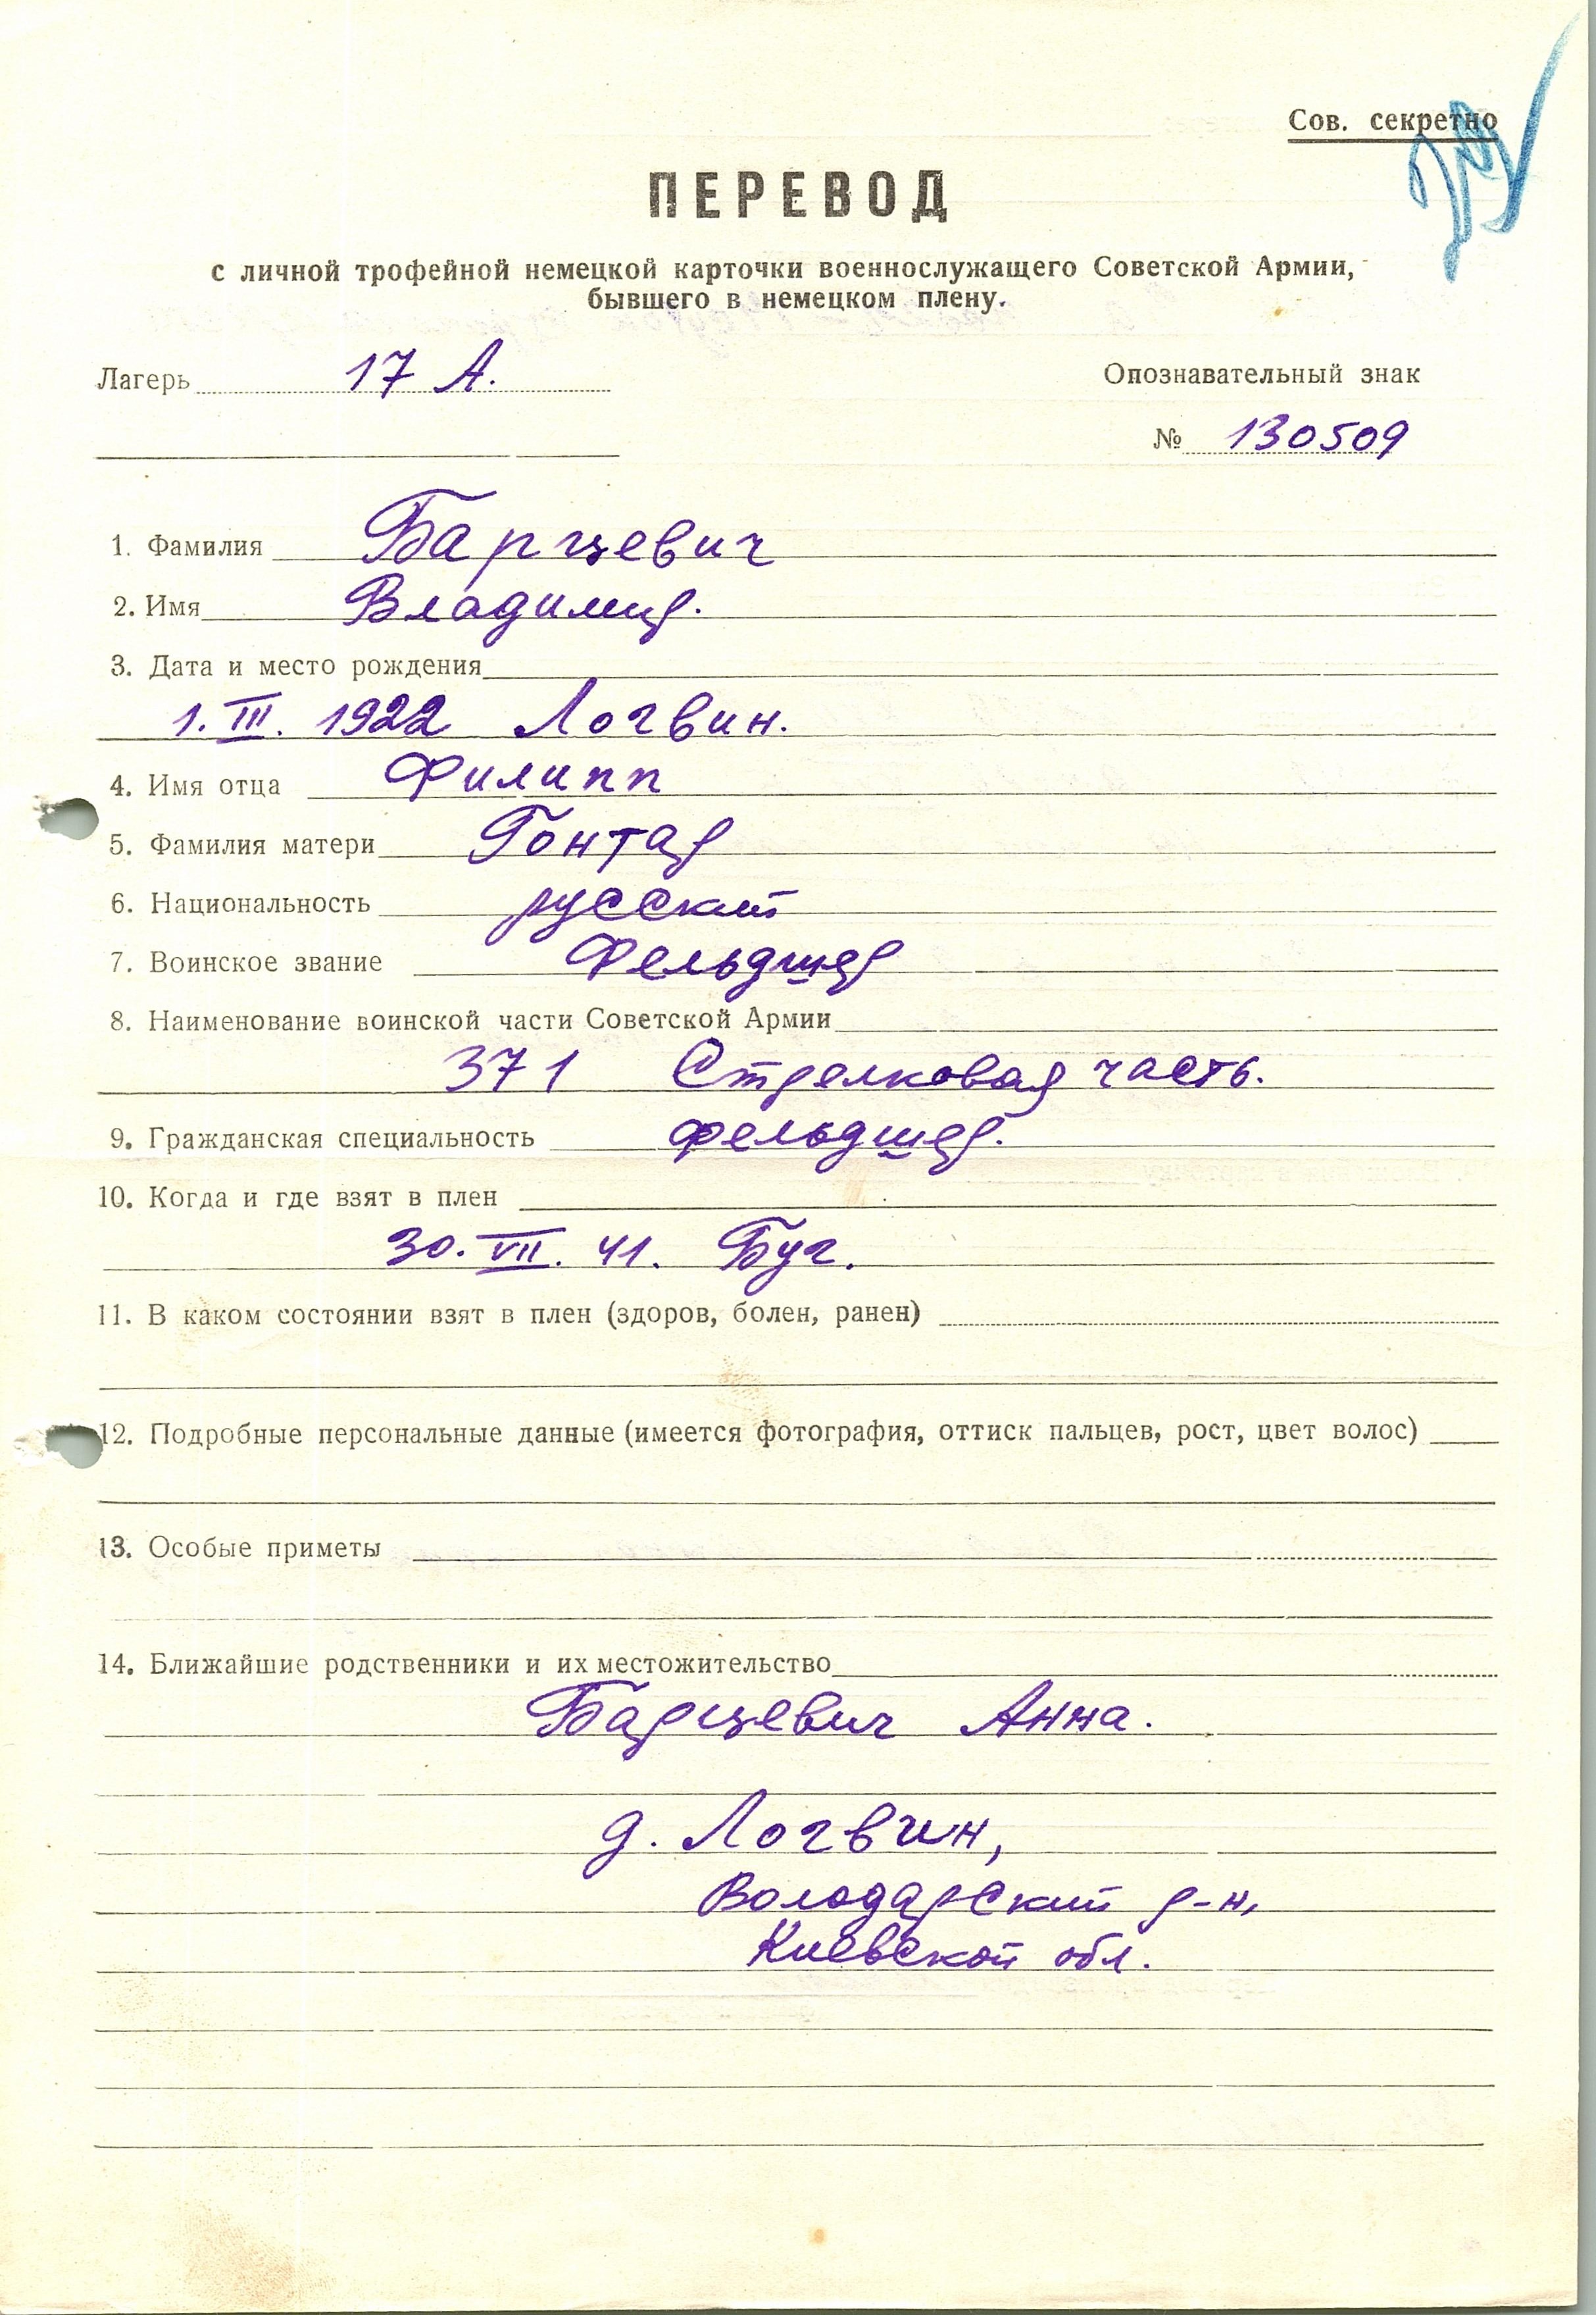 Сов. секретно
ПЕРЕВОД
с личной трофейной немецкой карточки военнослужащего Советской Армии,
бывшего в немецком плену.
Лагерь 17 А.
Опознавательный знак
№ 130509
1. Фамилия Барцевич
2. Имя Владимир.
3. Дата и место рождения
1. III. 1922 Логвин.
4. Имя отца Филипп
5. Фамилия матери Гонтар
6. Национальность русский
7. Воинское звание Фельдшер
8. Наименование воинской части Советской Армии
371 Стрелковая часть.
9. Гражданская специальность фельдшер.
10. Когда и где взят в плен
30. VII. 41. Буг.
11. В каком состоянии взят в плен (здоров, болен, ранен)
12. Подробные персональные данные (имеется фотография, оттиск пальцев, рост, цвет волос)
13. Особые приметы
14. Ближайшие родственники и их местожительство
Барцевич Анна.
д. Логвин,
Володарский р-н,
Киевской обл.